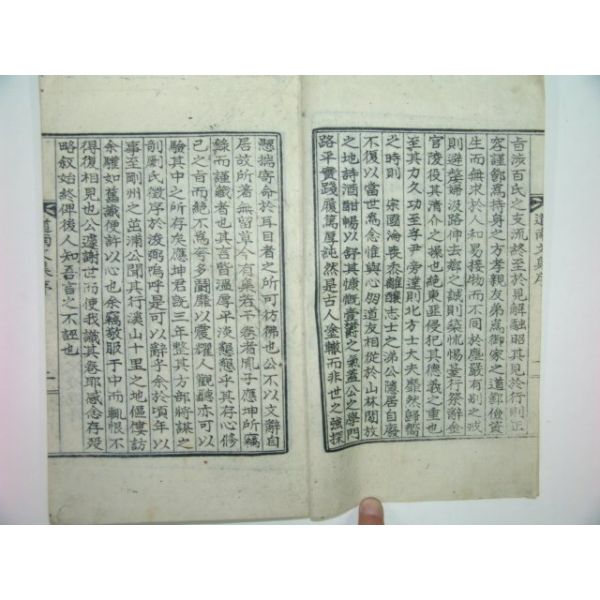 音液百氏之支流終至於見解融昭其見於行則正
容謹節爲持身之方孝親友弟爲御家之道節儉資
生而無求於人知易接物而不同於塵嚴有別之故
則避嫠婦汲路伸去鄉之誠則築恍惕臺行祭辭金
官陵役其清介之操也絶東匪侵犯其德義之重也
至其力久功至孚尹旁達則北方士大夫靡然歸嚮
之時則 宗國淪喪忝離釀志士之涕公隱居自廢
不復以當世爲念惟與心朙道友相從於山林閒放
之地詩酒酣暢以舒其慷慨壹鬱之氣盖公之學門
路平實踐履篤厚詑然是古人塗轍而非世之強探
懸揣寄命於耳目者之所可彷彿也公不以文辭自
居故所著無留草今有集若干卷者胤子應坤所竊
錄而謹藏者也其言皆溫厚平淡懇懇乎其存心修
己之旨而絶不爲夸多鬪靡以震耀人觀聽亦可以
驗其中之所存矣應坤君旣三年整其方部將謀之
剞劂氏徵序於浚弼嗚呼是可以辭乎余於頃年以
事至剛州之茁浦公聞其行溪山十里之地傴僂訪
余驩如舊識便許以心也余竊敬服于中而輒恨不
得復相見也公遽謝世而使我識其卷耶感念存歿
略叙始終俾後人知吾言之不誣也
道南文集序
一
道南文集序
二